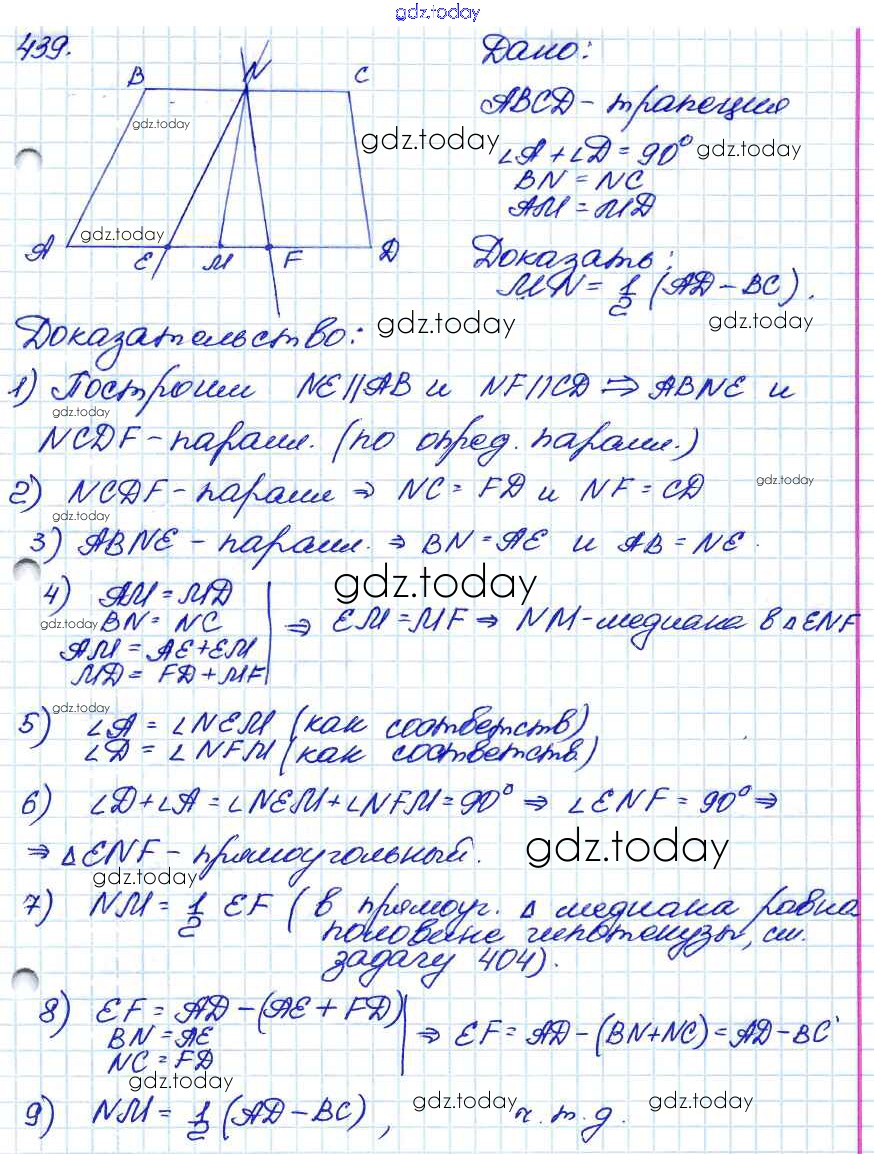 gdz.today
439.
B N C
A E M F D
gdz.today
gdz.today
Дано:
ABCD - трапеция
gdz.today
∠A + ∠D = 90° gdz.today
BN = NC
AM = MD
Доказать:
MN = 1/2 (AD - BC).
gdz.today
Доказательство: gdz.today
1) Построим NE||AB и NF||CD ⇒ ABNE и
gdz.today
NCDF - паралл. (по опред. паралл.)
2) NCDF - паралл ⇒ NC = FD и NF = CD gdz.today
gdz.today
3) ABNE - паралл. ⇒ BN = AE и AB = NE.
gdz.today
4) AM = MD
gdz.today BN = NC
AM = AE + EM
MD = FD + MF
⇒ EM = MF ⇒ NM - медиана в △ENF
gdz.today
5) ∠A = ∠NEM (как соответств)
∠D = ∠NFM (как соответств.)
6) ∠D + ∠A = ∠NEM + ∠NFM = 90° ⇒ ∠ENF = 90° ⇒
⇒ △ENF - прямоугольный. gdz.today
gdz.today
7) NM = 1/2 EF (в прямоуг. △ медиана равна
половине гипотенузы, см.
задачу 404).
8) EF = AD - (AE + FD)
BN = AE
NC = FD
⇒ EF = AD - (BN + NC) = AD - BC
gdz.today
9) NM = 1/2 (AD - BC), gdz.today ч.т.д. gdz.today